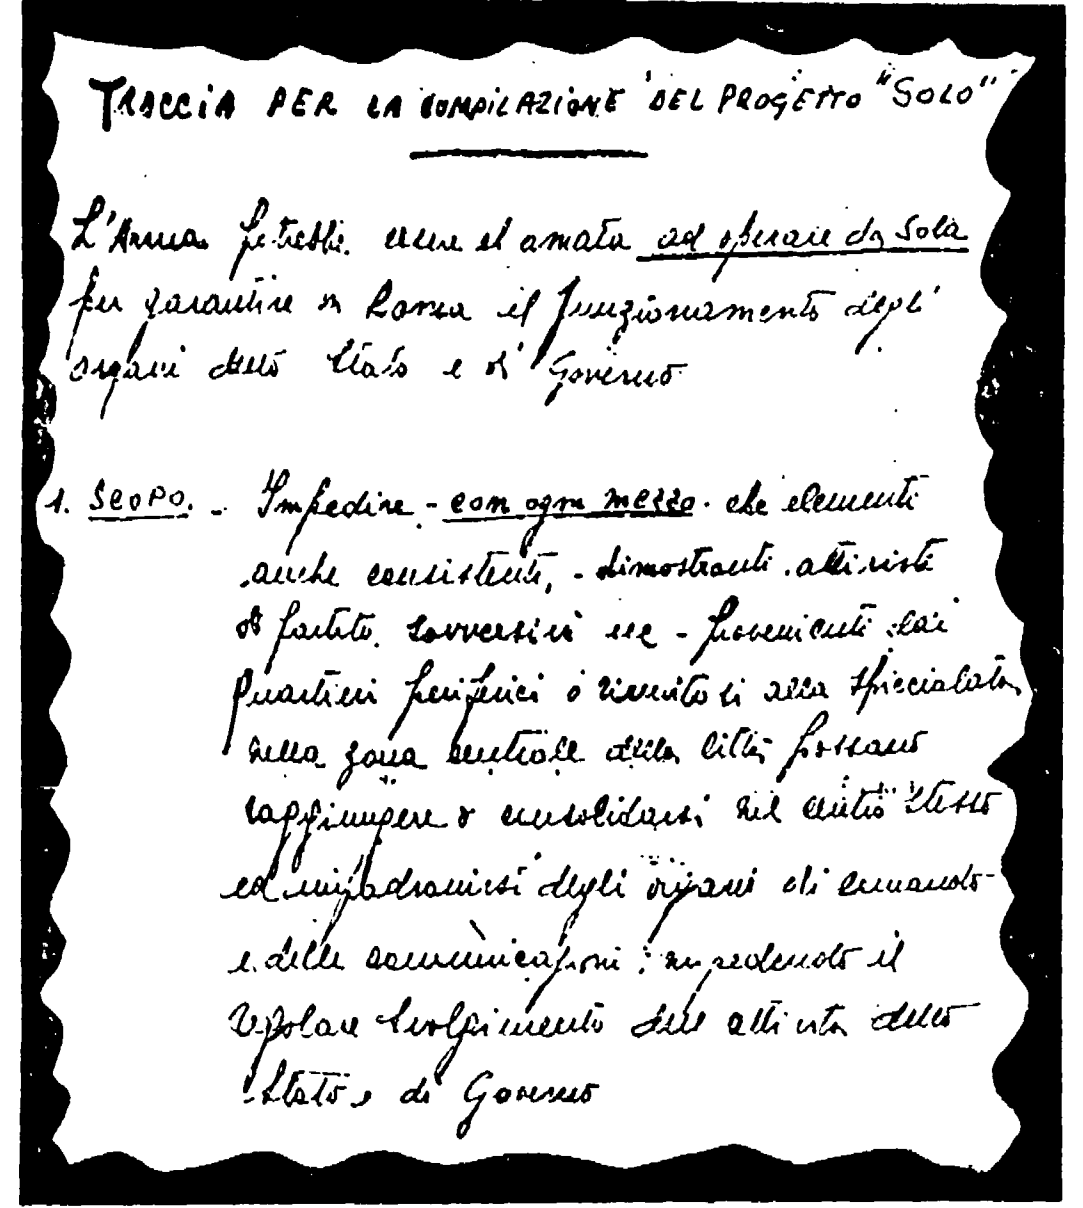 TRACCIA PER LA COMPILAZIONE DEL PROGETTO "SOLO"
L'Arma potrebbe essere chiamata ad operare da sola
per garantire in Roma il funzionamento degli
organi dello Stato e di Governo
1. SCOPO. - Impedire - con ogni mezzo - che elementi
anche consistenti, - dimostranti, attivisti
di partito, sovversivi ecc - provenienti dai
quartieri periferici o riunitosi alla spicciolata
nella zona centrale della città possano
raggiungere o consolidarsi nel centro stesso
ed impadronirsi degli organi di comando
e delle comunicazioni, impedendo il
regolare svolgimento dell'attività dello
Stato e di Governo